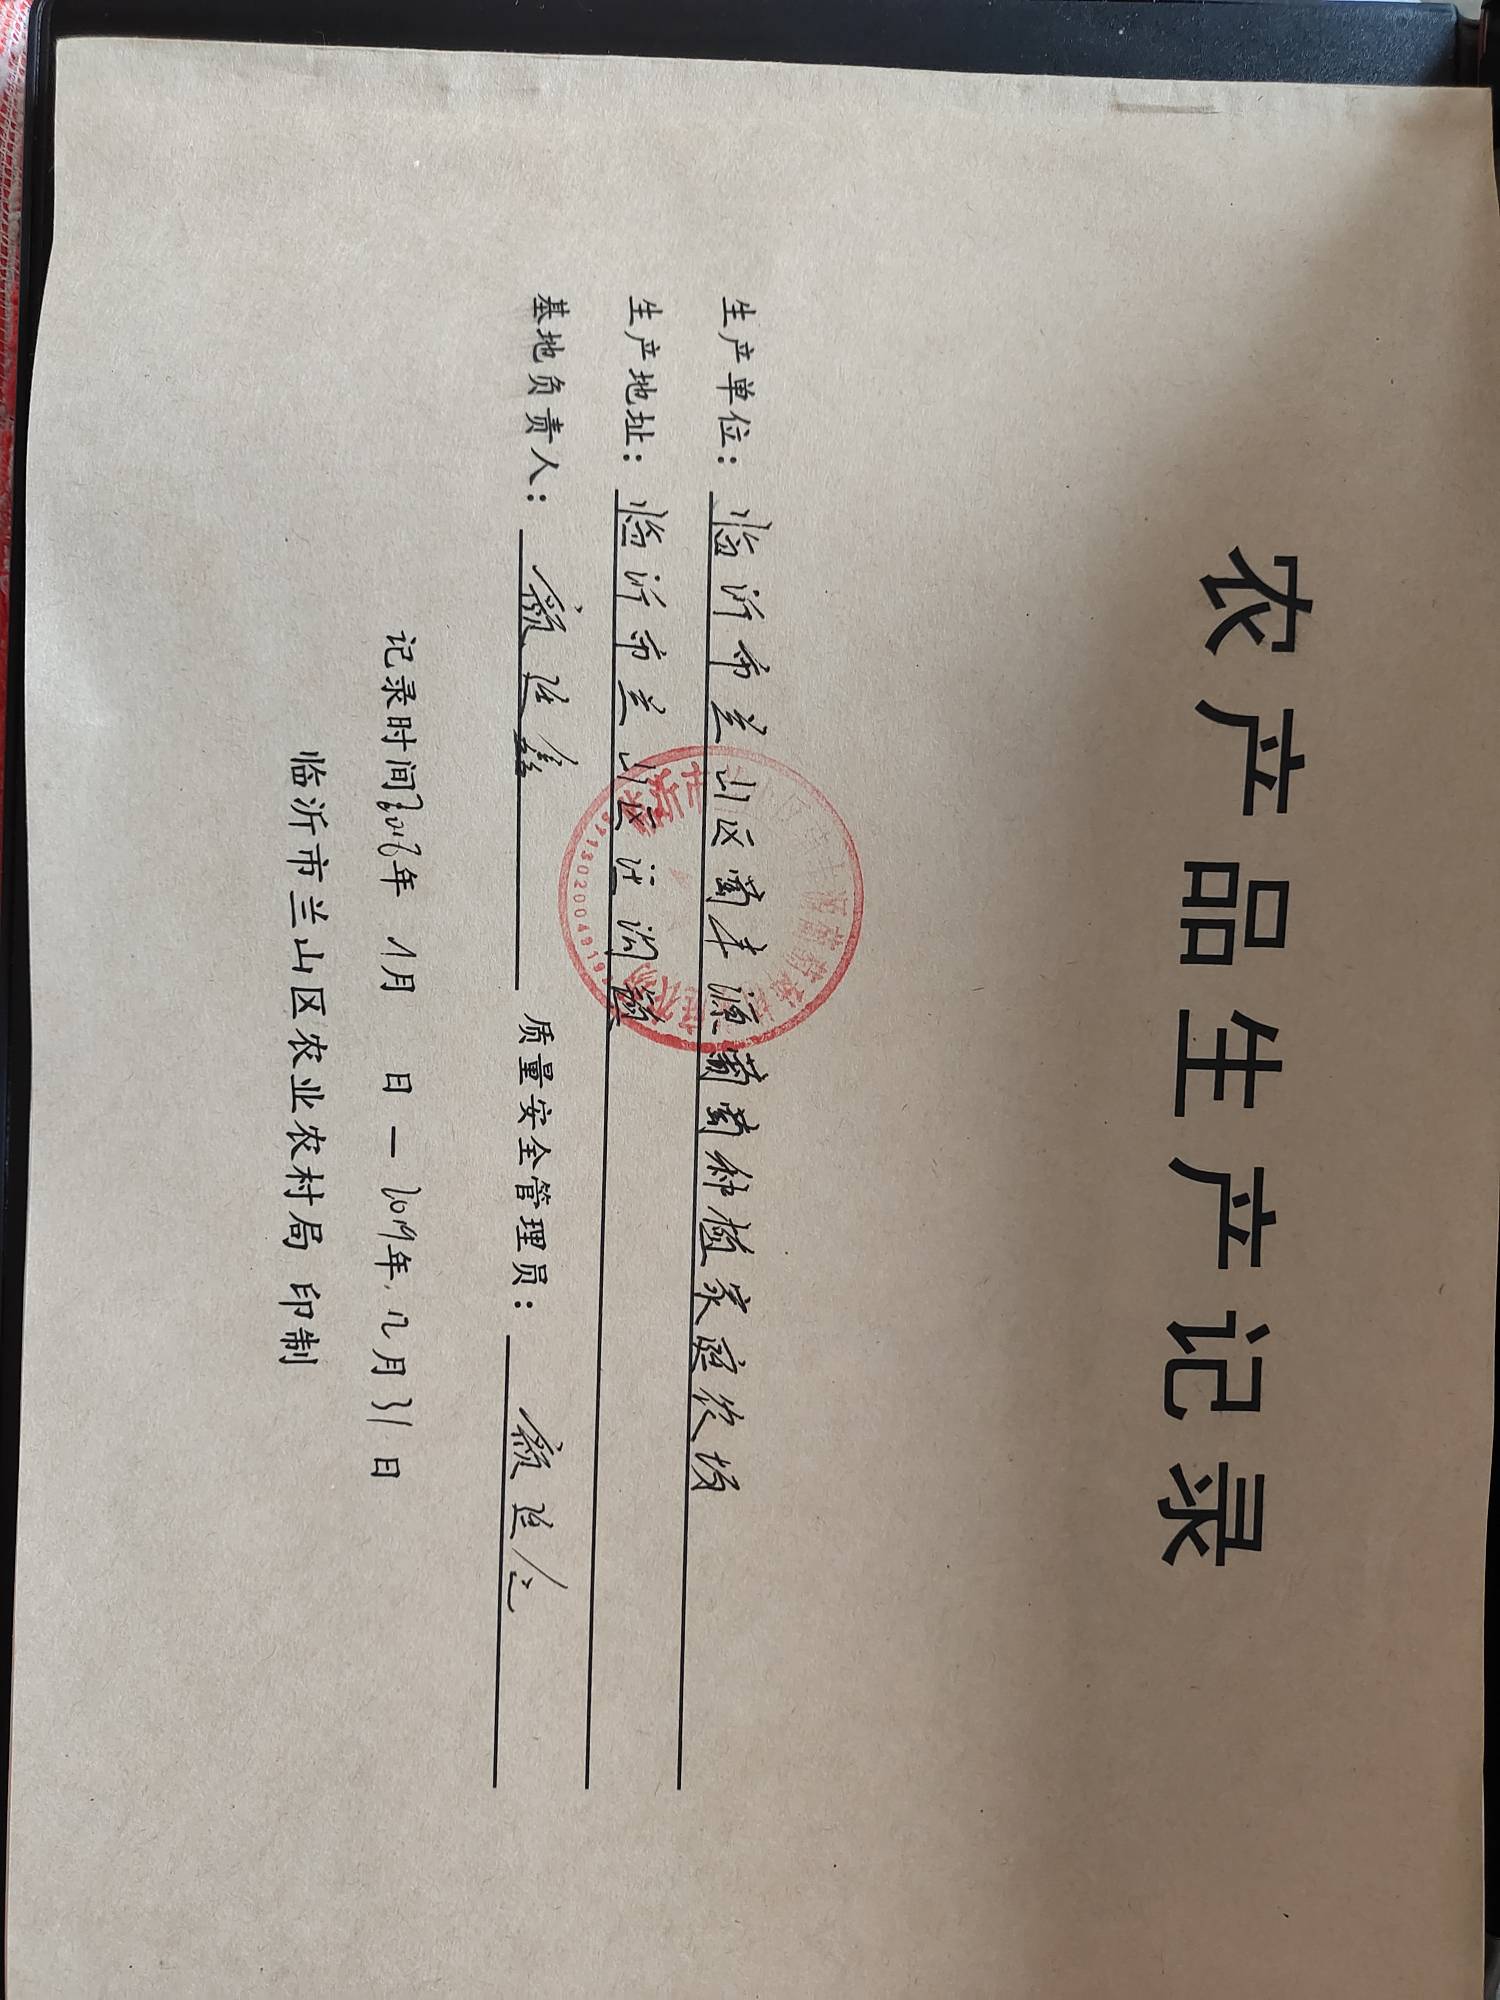 农产品生产记录
生产单位：临沂市兰山区葡丰源葡萄种植家庭农场
生产地址：临沂市兰山区汪沟镇
基地负责人：颜廷鑫 质量安全管理员：颜廷
记录时间 年 1月 日—2019年12月31日
临沂市兰山区农业农村局 印制